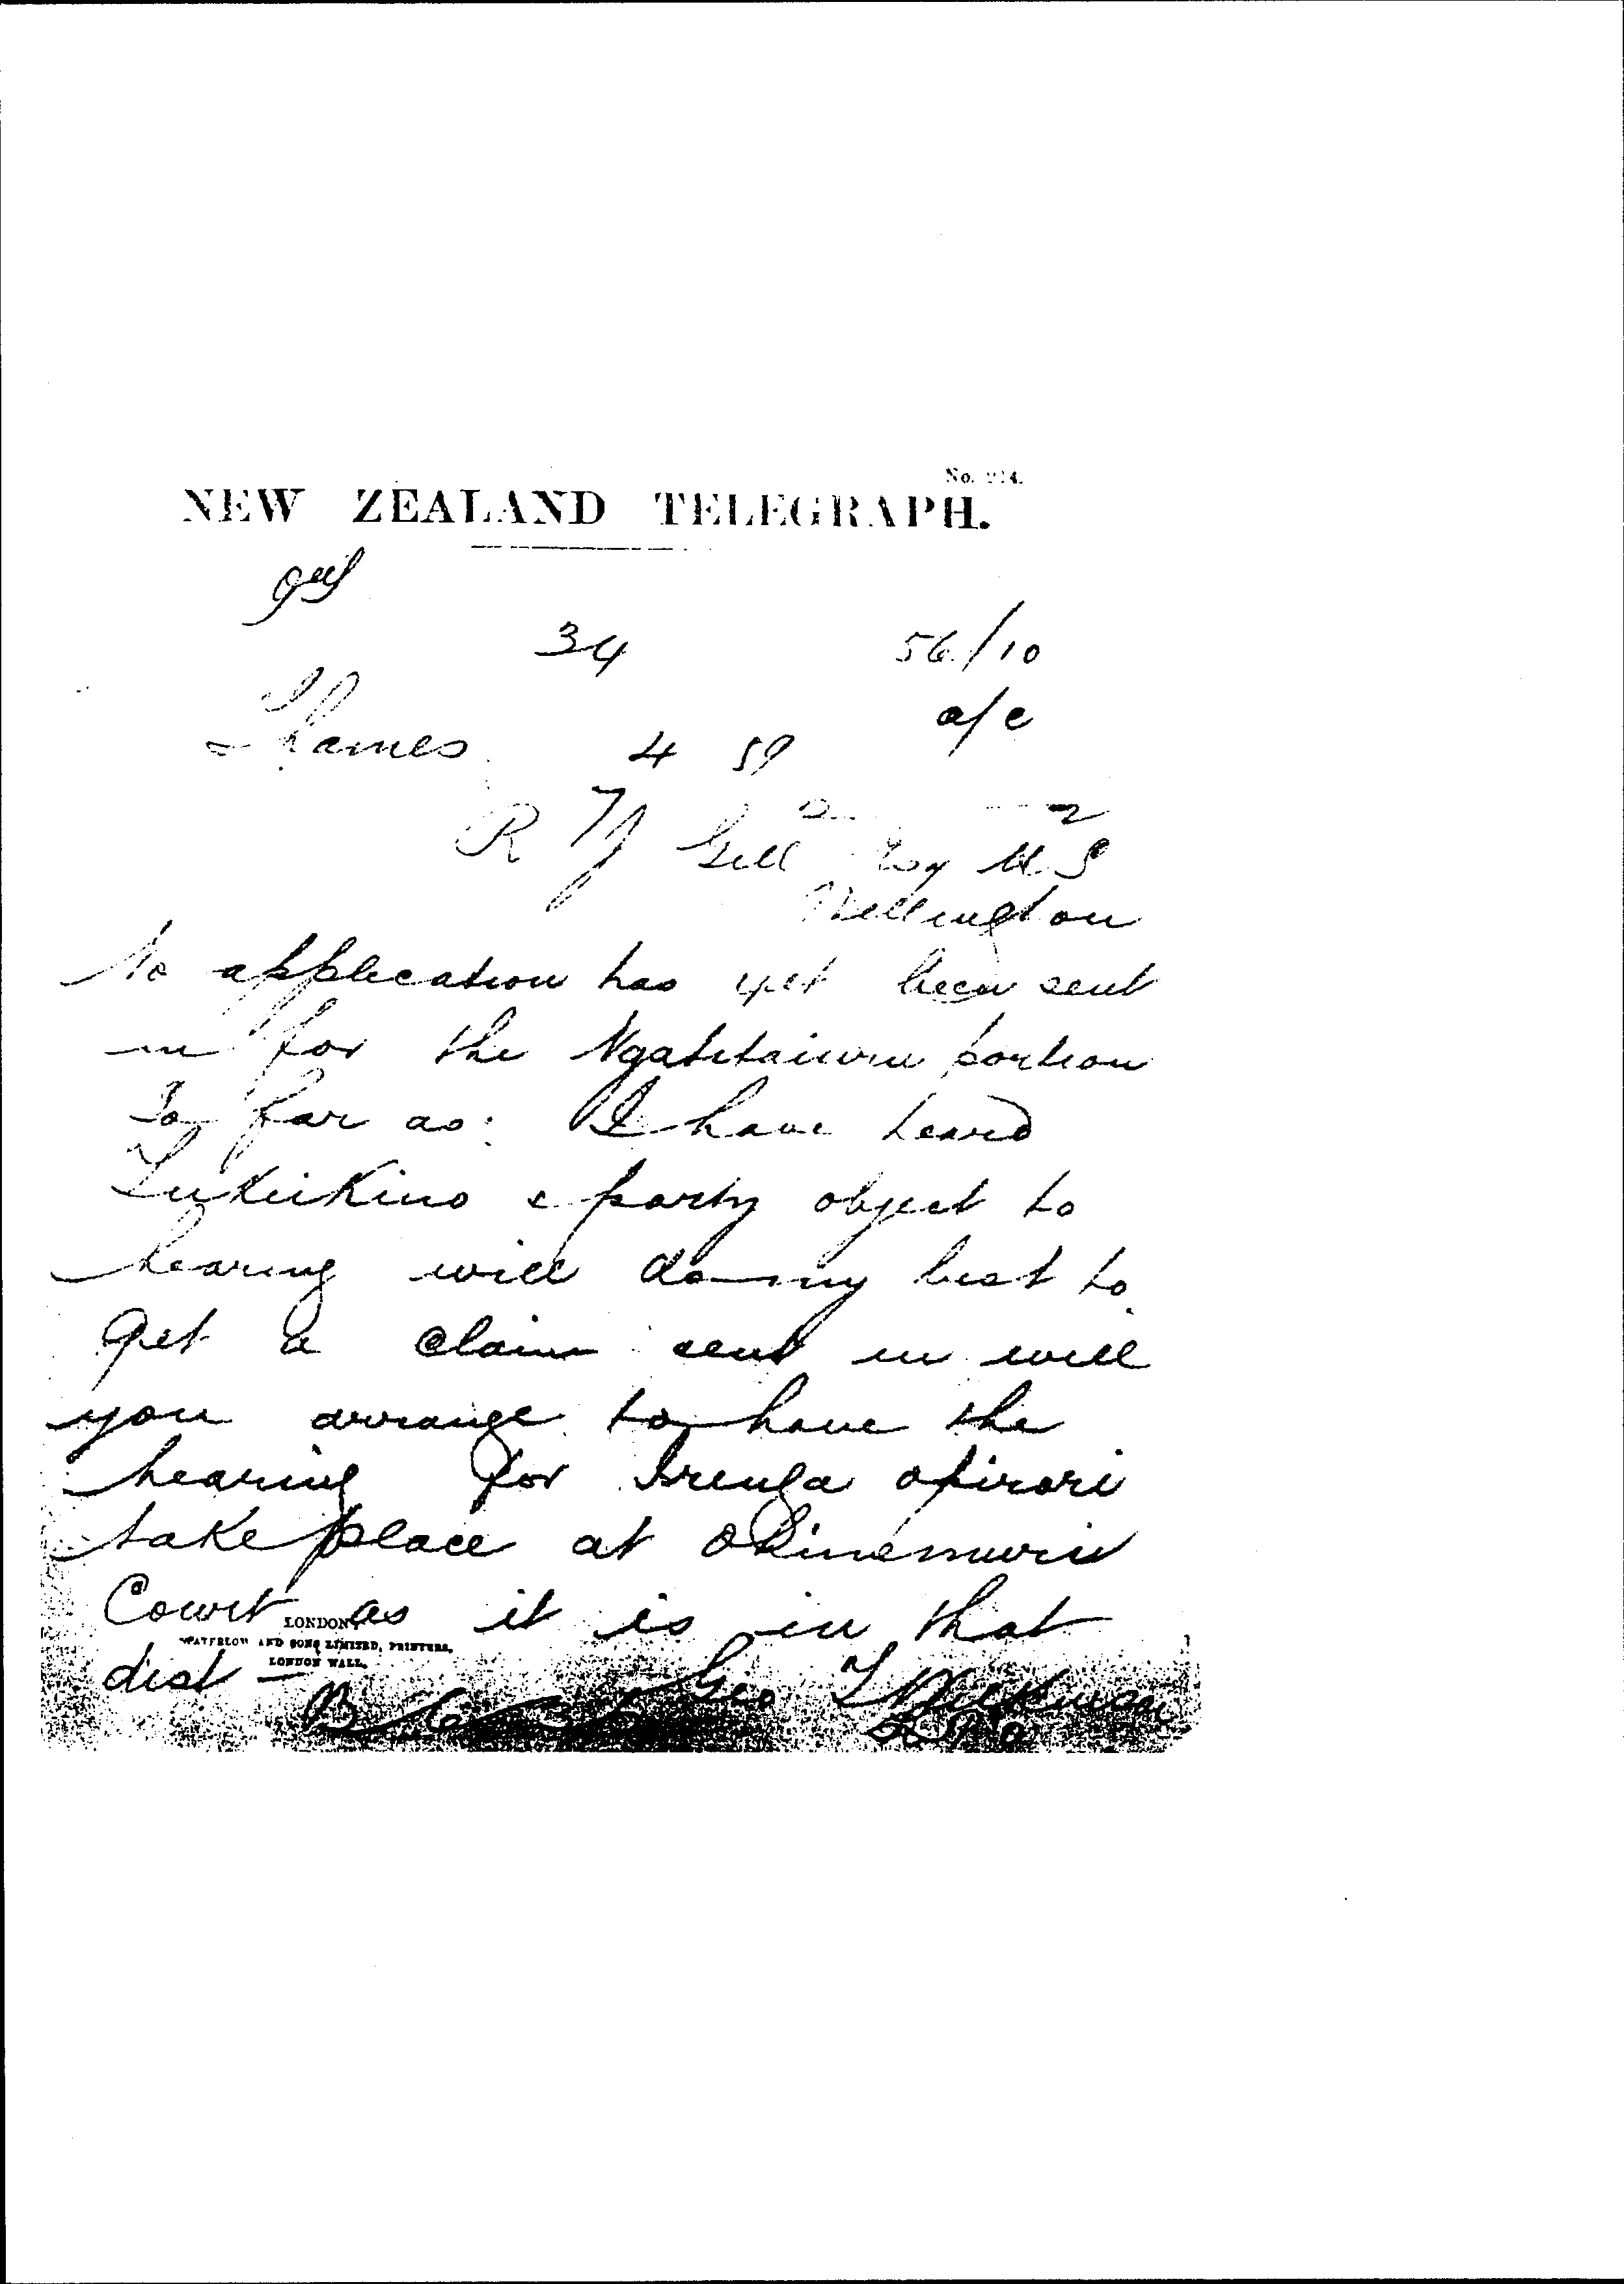 No. 214.
NEW ZEALAND TELEGRAPH.
34 56/10
Thames 4 59 a/c
R J Gill Esq U S
Wellington
No application has yet been sent
in for the Ngatitaiuru portion
So far as I have heard
Tukukino & party object to
hearing will do my best to
get a claim sent in will
you arrange to have the
hearing for Irenga opirori
take place at Ohinemuri
Court as it is in that
LONDON
WATERLOW AND SONS LIMITED, PRINTERS,
LONDON WALL.
dist —
Geo T Wilkinson